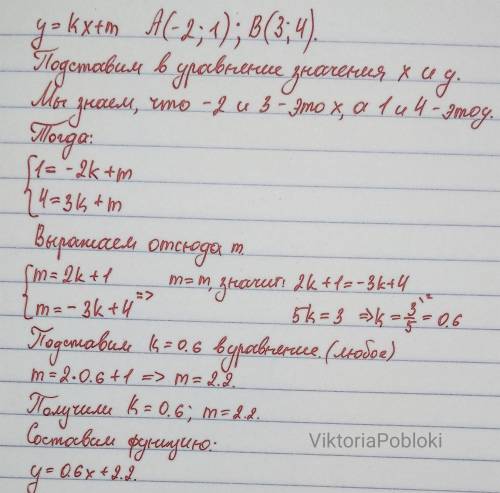 y = kx+m A(-2; 1); B(3; 4).
Подставим в уравнение значения x и y.
Мы знаем, что -2 и 3 - это x, а 1 и 4 - это y.
Тогда:
{1 = -2k+m
{4 = 3k+m
Выражаем отсюда m.
{m = 2k+1 => m = m, значит: 2k+1 = -3k+4
{m = -3k+4 5k = 3 => k = 3/5 = 0.6
Подставим k = 0.6 в уравнение. (любое)
m = 2·0.6+1 => m = 2.2.
Получили k = 0.6; m = 2.2.
Составим функцию:
y = 0.6x+2.2.
ViktoriaPobloki